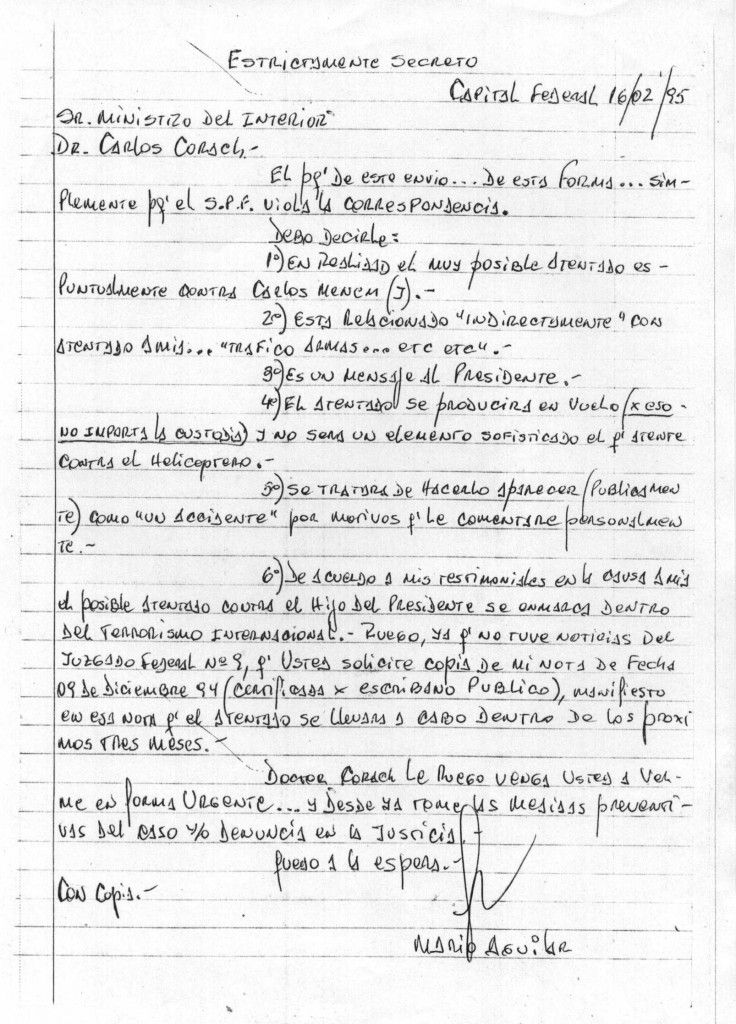 Estrictamente Secreto
Capital Federal 16/02/95
Sr. Ministro del Interior
Dr. Carlos Corach.-
El pq' de este envio... de esta forma... sim-
plemente pq' el S.P.F. viola la correspondencia.
Debo decirle:
1º) En realidad el muy posible atentado es-
puntualmente contra Carlos Menem (J).-
2º) Esta relacionado "indirectamente" con
atentado amia... "trafico armas... etc etc".-
3º) Es un mensaje al Presidente.-
4º) El atentado se producira en vuelo (x eso-
no importa la custodia) y no sera un elemento sofisticado el q' atente
contra el helicoptero.-
5º) Se tratara de hacerlo aparecer (publicamen
te) como "un accidente" por motivos q' le comentare personalmen
te.-
6º) De acuerdo a mis testimoniales en la causa amia
el posible atentado contra el hijo del Presidente se enmarca dentro
del terrorismo internacional.- Ruego, ya q' no tuve noticias del
Juzgado Federal Nº 9, q' Usted solicite copia de mi nota de fecha
09 de Diciembre 94 (certificada x escribano publico), manifiesto
en esa nota q' el atentado se llevara a cabo dentro de los proxi
mos tres meses.-
Doctor Corach le ruego venga Usted a ver-
me en forma urgente... y desde ya tome las medidas preventi-
vas del caso y/o denuncia en la Justicia.-
Quedo a la espera.-
Con copia.-
Mario Aguilar